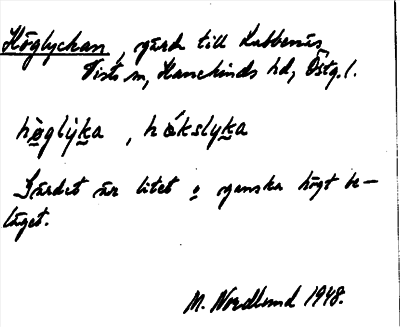 Höglyckan, gärd till Kubbenäs
Tists sn, Hanekinds hd, Östg.l.
hø̀glỳk̲a , hákslyk̲a
Gärdet är litet o ganska högt be-
läget.
M. Nordlund 1948.